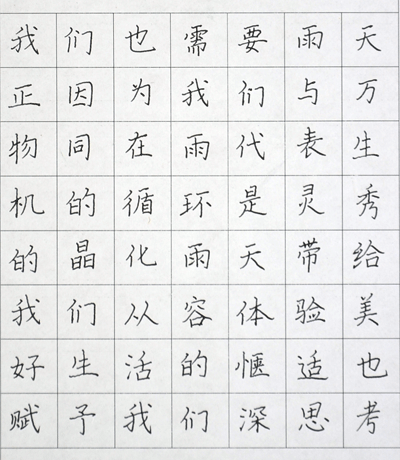 我们也需要雨天
正因为我们与万
物同在雨代表生
机的循环是灵秀
的晶化雨天带给
我们从容体验美
好生活的惬适也
赋予我们深思考